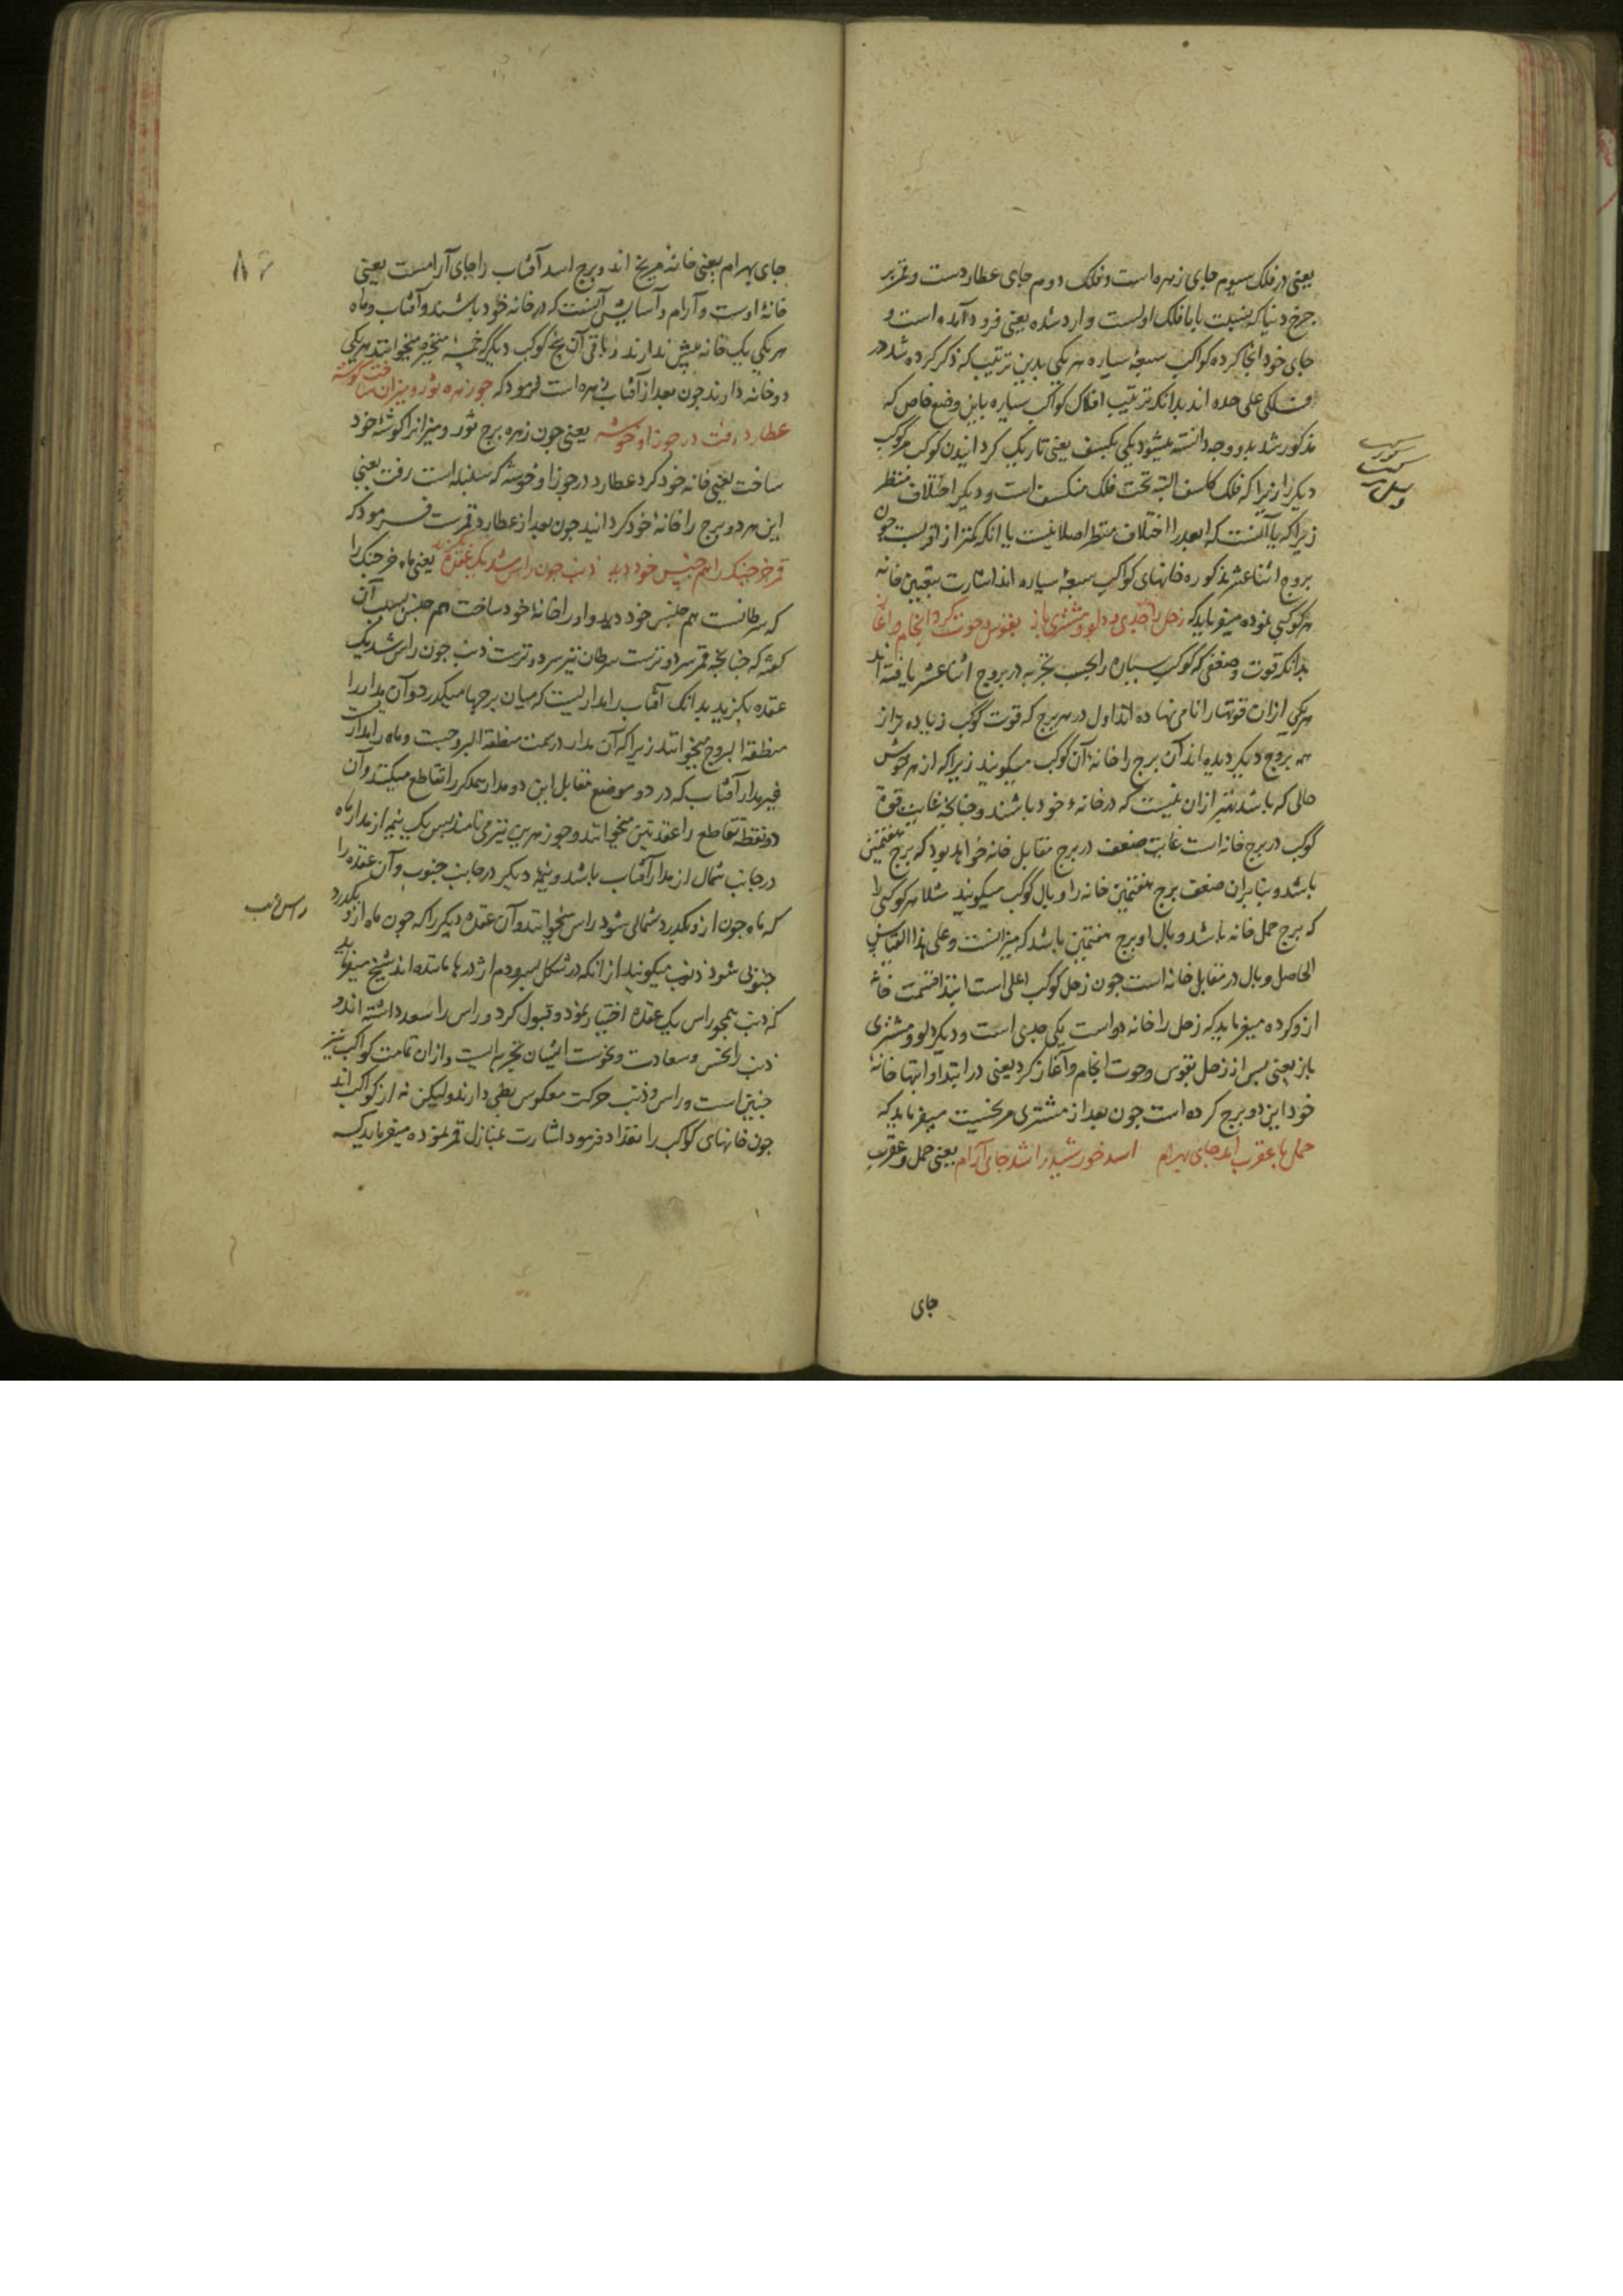 یعنی در فلک سیوم جای زهره است و فلک دوم جای عطاردست و قمر بر
چرخ دنیا که بنسبت با ما فلک اولست وارد شده یعنی فرود آمده است و
جای خود آنجا کرده کواکب سبعهٔ سیاره هر یکی بدین ترتیب که ذکر کرده شد در
فلکی علی حده اند بدانکه ترتیب افلاک کواکب سیاره باین وضع خاص که
مذکور شد بدو وجه دانسته میشود یکی بکسف یعنی تاریک کردانیدن کوکب مر کوکب
دیکر را زیرا که فلک کاسف البته تحت فلک منکسف است و دیکر اختلاف منظر
زیرا که یا آنست که ابعد را اختلاف منظر اصلا نیست یا انکه کمتر از اقربست چون
بروج اثنا عشر مذکوره خانهای کواکب سبعهٔ سیاره اند اشارت بتعیین خانه
هر کوکبی نموده میفرماید که زحل را جدی و دلو و مشتری باز بقوس و حوت کرد انجام و آغاز
بدانکه قوت و ضعفی که کواکب سیاره را بحسب تجربه در بروج اثنا عشر یافته اند
هر یکی از ان قوتها را نامی نهاده اند اول در هر برج که قوت کوکب زیاده تر از
همه بروج دیکر دیده اند آن برج را خانهٔ آن کوکب میکویند زیرا که از هر کوش
حالی که باشد بهتر ازان نیست که در خانهٔ خود باشند و چنانچه غایت قوة
کوکب در برج خانه است غایت ضعف در برج مقابل خانه خواهد بود که برج هفتمین
باشد و بنابران ضعف برج هفتمین خانه را وبال کوکب میکویند مثلا هر کوکبی را
که برج حمل خانه باشد وبال او برج هفتمین باشد که میزانست و علی هذا القیاس
الحاصل وبال در مقابل خانه است چون زحل کوکب اعلی است ابتدا قسمت خانه
ازو کرده میفرماید که زحل را خانه دو است یکی جدی است و دیکر دلو و مشتری
باز یعنی بس از زحل بقوس و حوت انجام و آغاز کرد یعنی در ابتدا و انتها خانهٔ
خود این دو برج کرده است چون بعد از مشتری مریخست میفرماید که
حمل با عقرب آمد جای بهرام اسد خورشید را شد جای آرام یعنی حمل و عقرب
جای
جای بهرام یعنی خانهٔ مریخ اند و برج اسد آفتاب را جای آرامست یعنی
خانهٔ اوست و آرام و آسایش آنست که در خانه خود باشند و آفتاب و ماه
هر یکی یک خانه بیش ندارند و باقی آن پنج کوکب دیگر که خمسهٔ متحیره میخوانند هر یکی
دو خانه دارند چون بعد از آفتاب زهره است فرمود که چو زهره ثور و میزان ساخت گوشه
عطارد رفت در جوزا و خوشه یعنی چون زهره برج ثور و میزان را کوشهٔ خود
ساخت یعنی خانه خود کرد عطارد در جوزا و خوشه که سنبله است رفت یعنی
این هر دو برج را خانهٔ خود کردانید چون بعد از عطارد قمرست فرمود که
قمر خرچنک را هم جنس خود دید ذنب چون راس شد یک عقده بگزید یعنی ماه خرچنک را
که سرطانست هم جنس خود دید و او را خانهٔ خود ساخت هم جنس بسبب آن
کفته که چنانچه قمر سرد و ترست سرطان نیز سرد و ترست ذنب چون راس شد یک
عقده بکزید بدانک آفتاب را مداریست که میان برجها میکدرد و آن مدار را
منطقة البروج میخوانند زیرا که آن مدار در سمت منطقة البروجست و ماه را مداریست
غیر مدار آفتاب که در دو موضع مقابل این دو مدار همدکر را تقاطع میکنند و آن
دو نقطه تقاطع را عقدتین میخوانند و جوزهرین نیز می نامند بس یک نیم از مدار ماه
در جانب شمال از مدار آفتاب باشد و نیم دیکر در جانب جنوب و آن عقده را
که ماه چون ازو بکدرد شمالی شود راس میخوانند و آن عقده دیکر را که چون ماه ازو بکدرد
جنوبی شود ذنب میکویند از انکه در شکل بسر و دم اژدرها مانند اند شیخ میفرماید
که ذنب همچو راس یک عقده اختیار نمود و قبول کرد و راس را سعد داشته اند و
ذنب را نحس و سعادت و نحوست ایشان تجربه ایست و ازان تمامت کواکب نیز
چنین است و راس و ذنب حرکت معکوس بطی دارند ولیکن نه از کواکب اند
چون خانهای کواکب را تعداد فرمود اشارت بمنازل قمر نموده میفرماید که